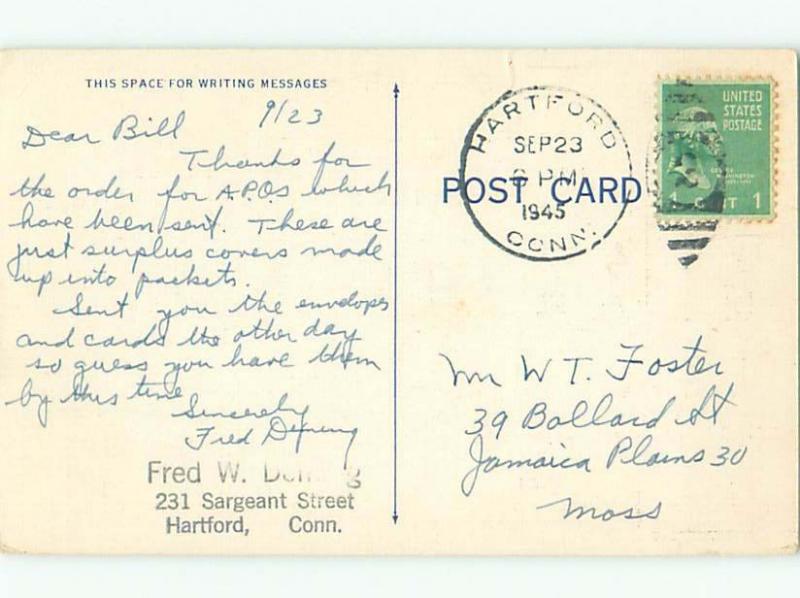 THIS SPACE FOR WRITING MESSAGES
9/23
Dear Bill
Thanks for
the order for A.P.O.s which
have been sent. These are
just surplus covers made
up into packets.
Sent you the envelopes
and cards the other day
so guess you have them
by this time
Sincerely
Fred Deming
Fred W.
231 Sargeant Street
Hartford, Conn.
HARTFORD
SEP 23
PM
1945
CONN.
UNITED
STATES
POSTAGE
GEORGE
WASHINGTON
1
POST CARD
Mr W T. Foster
39 Ballard St
Jamaica Plains 30
Mass